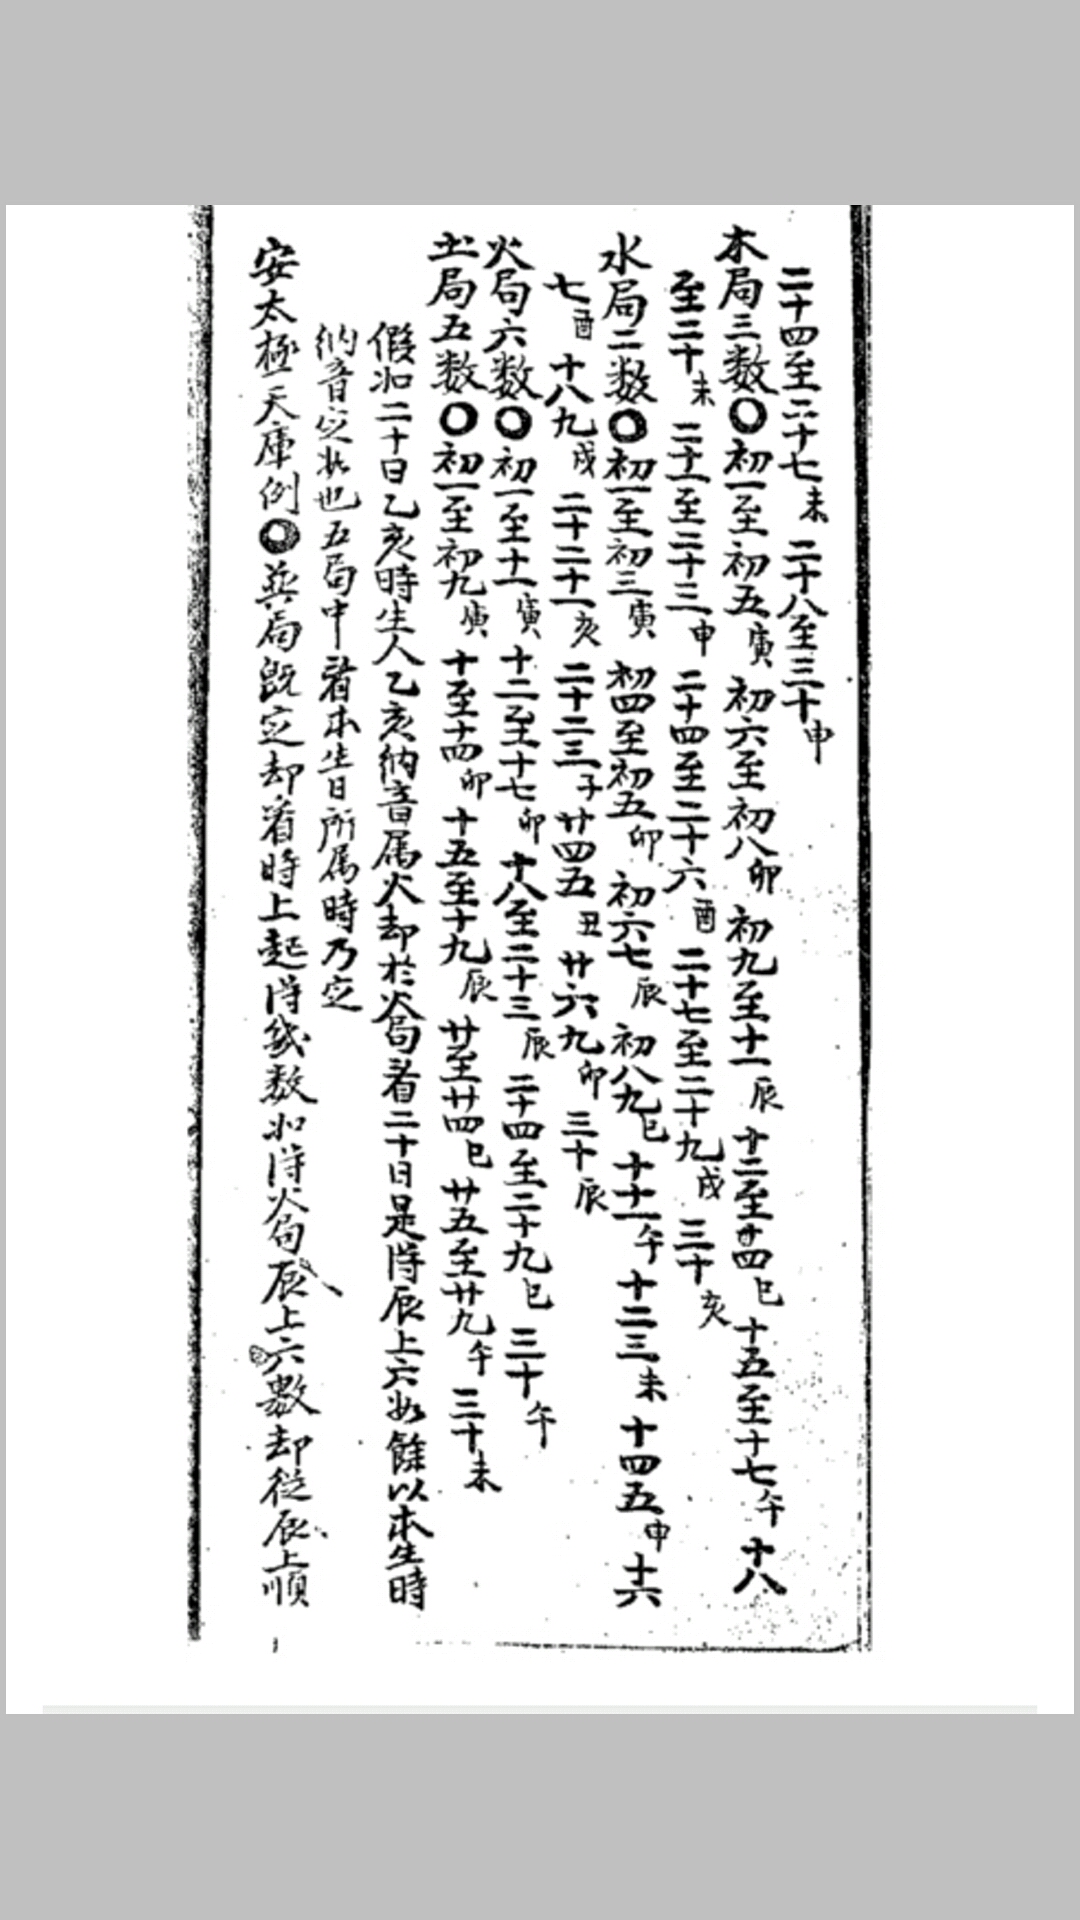 二十四至二十七未 二十八至三十申
木局三数〇初一至初五寅 初六至初八卯 初九至十一辰 十二至十四巳 十五至十七午 十八
至二十未 二十一至二十三申 二十四至二十六酉 二十七至二十九戌 三十亥
水局二数〇初一至初三寅 初四至初五卯 初六七辰 初八九巳 十十一午 十二三未 十四五申 十六
七酉 十八九戌 二十二十一亥 二十二三子 廿四五丑 廿六九卯 三十辰
火局六数〇初一至十一寅 十二至十七卯 十八至二十三辰 二十四至二十九巳 三十午
土局五数〇初一至初九寅 十至十四卯 十五至十九辰 廿至廿四巳 廿五至廿九午 三十未
假如二十日乙亥時生人乙亥納音属火却於火局看二十日是得辰上六数餘以本生時
納音定於也五局中看本生日所属時乃定
安太極天庫例〇其局既定却看時上起得幾数如得火局辰上六數却從辰上順